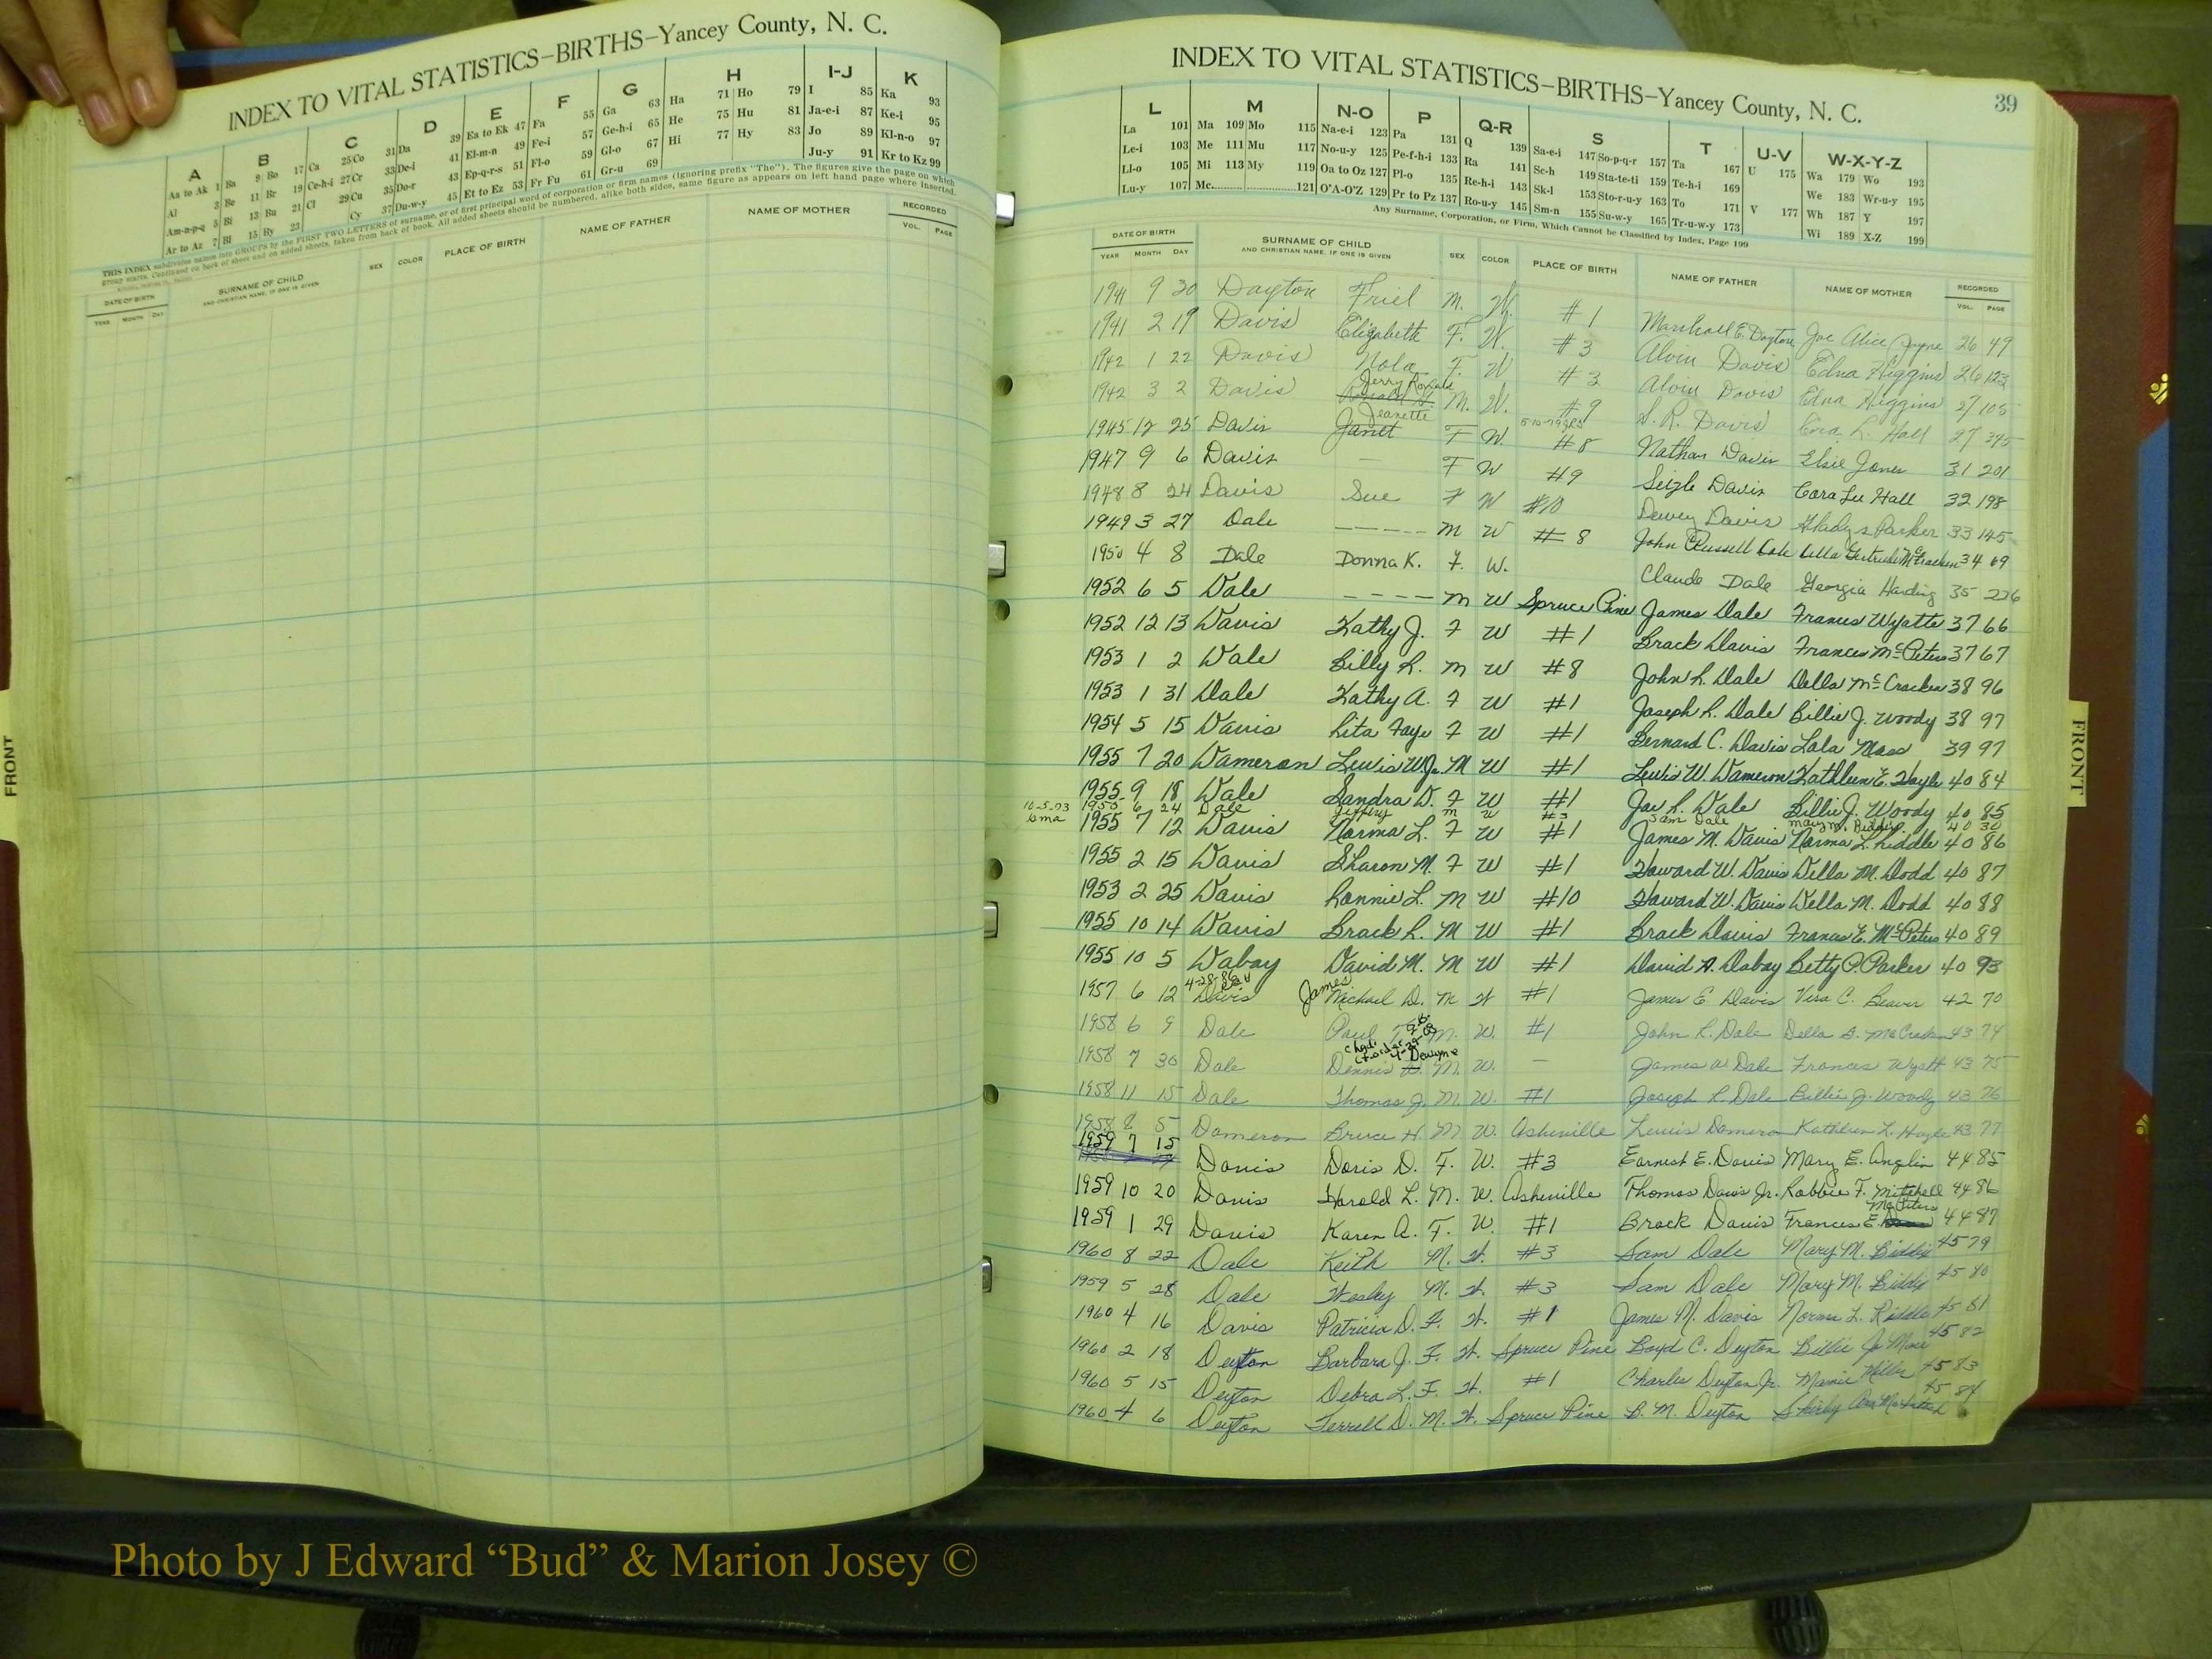 INDEX TO VITAL STATISTICS—BIRTHS—Yancey County, N. C.
A B C D E F G H I-J K
Aa to Ak 1 Ba 9 Bo 17 Ca 25 Co 31 Da 39 Ea to Ek 47 Fa 55 Ga 63 Ha 71 Ho 79 I 85 Ka 93
Al 3 Be 11 Br 19 Ce-h-i 27 Cr 33 De-i 41 El-m-n 49 Fe-i 57 Ge-h-i 65 He 75 Hu 81 Ja-e-i 87 Ke-i 95
Am-n-p-q 5 Bi 13 Bu 21 Cl 29 Cu 35 Do-r 43 Ep-q-r-s 51 Fl-o 59 Gl-o 67 Hi 77 Hy 83 Jo 89 Kl-n-o 97
Ar to Az 7 Bl 15 By 23 Cy 37 Du-w-y 45 Et to Ez 53 Fr Fu 61 Gr-u 69 Ju-y 91 Kr to Kz 99
THIS INDEX subdivides names into GROUPS by the FIRST TWO LETTERS of surname, or of first principal word of corporation or firm names (ignoring prefix "The"). The figures give the page on which
group starts. Continued on back of sheet and on added sheets, taken from back of book. All added sheets should be numbered, alike both sides, same figure as appears on left hand page where inserted.
DATE OF BIRTH SURNAME OF CHILD SEX COLOR PLACE OF BIRTH NAME OF FATHER NAME OF MOTHER RECORDED
YEAR MONTH DAY AND CHRISTIAN NAME, IF ONE IS GIVEN VOL. PAGE
FRONT
INDEX TO VITAL STATISTICS—BIRTHS—Yancey County, N. C. 39
L M N-O P Q-R S T U-V W-X-Y-Z
La 101 Ma 109 Mo 115 Na-e-i 123 Pa 131 Q 139 Sa-e-i 147 So-p-q-r 157 Ta 167 U 175 Wa 179 Wo 193
Le-i 103 Me 111 Mu 117 No-u-y 125 Pe-f-h-i 133 Ra 141 Sc-h 149 Sta-te-ti 159 Te-h-i 169 We 183 Wr-u-y 195
Ll-o 105 Mi 113 My 119 Oa to Oz 127 Pl-o 135 Re-h-i 143 Sk-l 153 Sto-r-u-y 163 To 171 V 177 Wh 187 Y 197
Lu-y 107 Mc 121 O'A-O'Z 129 Pr to Pz 137 Ro-u-y 145 Sm-n 155 Su-w-y 165 Tr-u-w-y 173 Wi 189 X-Z 199
Any Surname, Corporation, or Firm, Which Cannot be Classified by Index, Page 199
DATE OF BIRTH SURNAME OF CHILD SEX COLOR PLACE OF BIRTH NAME OF FATHER NAME OF MOTHER RECORDED
YEAR MONTH DAY AND CHRISTIAN NAME, IF ONE IS GIVEN VOL. PAGE
1941 9 30 Dayton Friel M. W. #1 Marshall E. Dayton Joe Alice 26 49
1941 2 19 Davis Elizabeth F. W. #3 Alvin Davis Edna Higgins 26 123
1942 1 22 Davis Nola F. W #3 Alvin Davis Edna Higgins 27 105
Jerry Ronald
1942 3 2 Davis M. W. #9 S. R. Davis L. Hall 27 395
Jeanette 5-10-79
1945 12 25 Davis Janet F W. #8 Nathan Davis Elsie Jones 31 201
1947 9 6 Davis — F W #9 Seizle Davis Cora Lee Hall 32 198
1948 8 24 Davis Sue F W #10 Dewey Davis Gladys Parker 33 145
1949 3 27 Dale ----- M W #8 John Russell Dale Della Gertrude McCracken 34 69
1950 4 8 Dale Donna K. F. W. Claude Dale Georgia Harding 35 226
1952 6 5 Dale ---- M W Spruce Pine James Dale Frances Wyatte 37 66
1952 12 13 Davis Kathy J. F W #1 Brack Davis Frances McPeters 37 67
1953 1 2 Dale Billy R. M W #8 John R. Dale Della McCracken 38 96
1953 1 31 Dale Kathy A. F W #1 Joseph R. Dale Billie J. Woody 38 97
1954 5 15 Davis Rita Faye F W #1 Bernard C. Davis Lola Mass 39 97
1955 7 20 Dameron Lewis W. Jr. M W #1 Lewis W. Dameron Kathleen E. Hayle 40 84
1955 9 18 Dale Sandra D. F W #1 Joe R. Dale Billie J. Woody 40 85
10-5-73 1955 6 24 Dale Jeffery M W #3 Sam Dale Mary M. Biddix 40 30
1955 7 12 Davis Norma L. F W #1 James M. Davis Norma L. Riddle 40 86
1955 2 15 Davis Sharon M. F W #1 Howard W. Davis Della M. Dodd 40 87
1953 2 25 Davis Ronnie L. M W #10 Howard W. Davis Della M. Dodd 40 88
1955 10 14 Davis Brack R. M W #1 Brack Davis Frances E. McPeters 40 89
1955 10 5 Dabay David M. M W #1 David A. Dabay Betty P. Parker 40 93
1957 6 12 Davis James Michael D. M W #1 James E. Davis Vera C. Beaver 42 70
1958 6 9 Dale Paul M. W. #1 John R. Dale Della G. McCracken 43 74
1958 7 30 Dale Dennis Dewayne M. W. — James W. Dale Frances Wyatt 43 75
1958 11 15 Dale Thomas J. M. W. #1 Joseph R. Dale Billie J. Woody 43 76
1958 8 5 Dameron Bruce H. M W. Asheville Lewis Dameron Kathleen L. Hogle 43 77
1959 7 15 Davis Doris D. F. W. #3 Earnest E. Davis Mary E. Anglin 44 85
1959 10 20 Davis Harold L. M. W. Asheville Thomas Davis Jr. Robbie F. Mitchell 44 86
1959 1 29 Davis Karen A. F. W. #1 Brack Davis Frances E. McPeters 44 87
1960 8 22 Dale Keith M. W. #3 Sam Dale Mary M. Biddix 45 79
1959 5 28 Dale Wesley M. W. #3 Sam Dale Mary M. Biddix 45 80
1960 4 16 Davis Patricia D. F. W. #1 James M. Davis Norma L. Riddle 45 81
1960 2 18 Deyton Barbara J. F. W. Spruce Pine Boyd C. Deyton Billie Jo 45 82
1960 5 15 Deyton Debra L. F. W. #1 Charles Deyton Jr. Mamie Miller 45 83
1960 4 6 Deyton Terrell D. M. W. Spruce Pine B. M. Deyton Shirly Ann 45 84
FRONT
Photo by J Edward “Bud” & Marion Josey ©